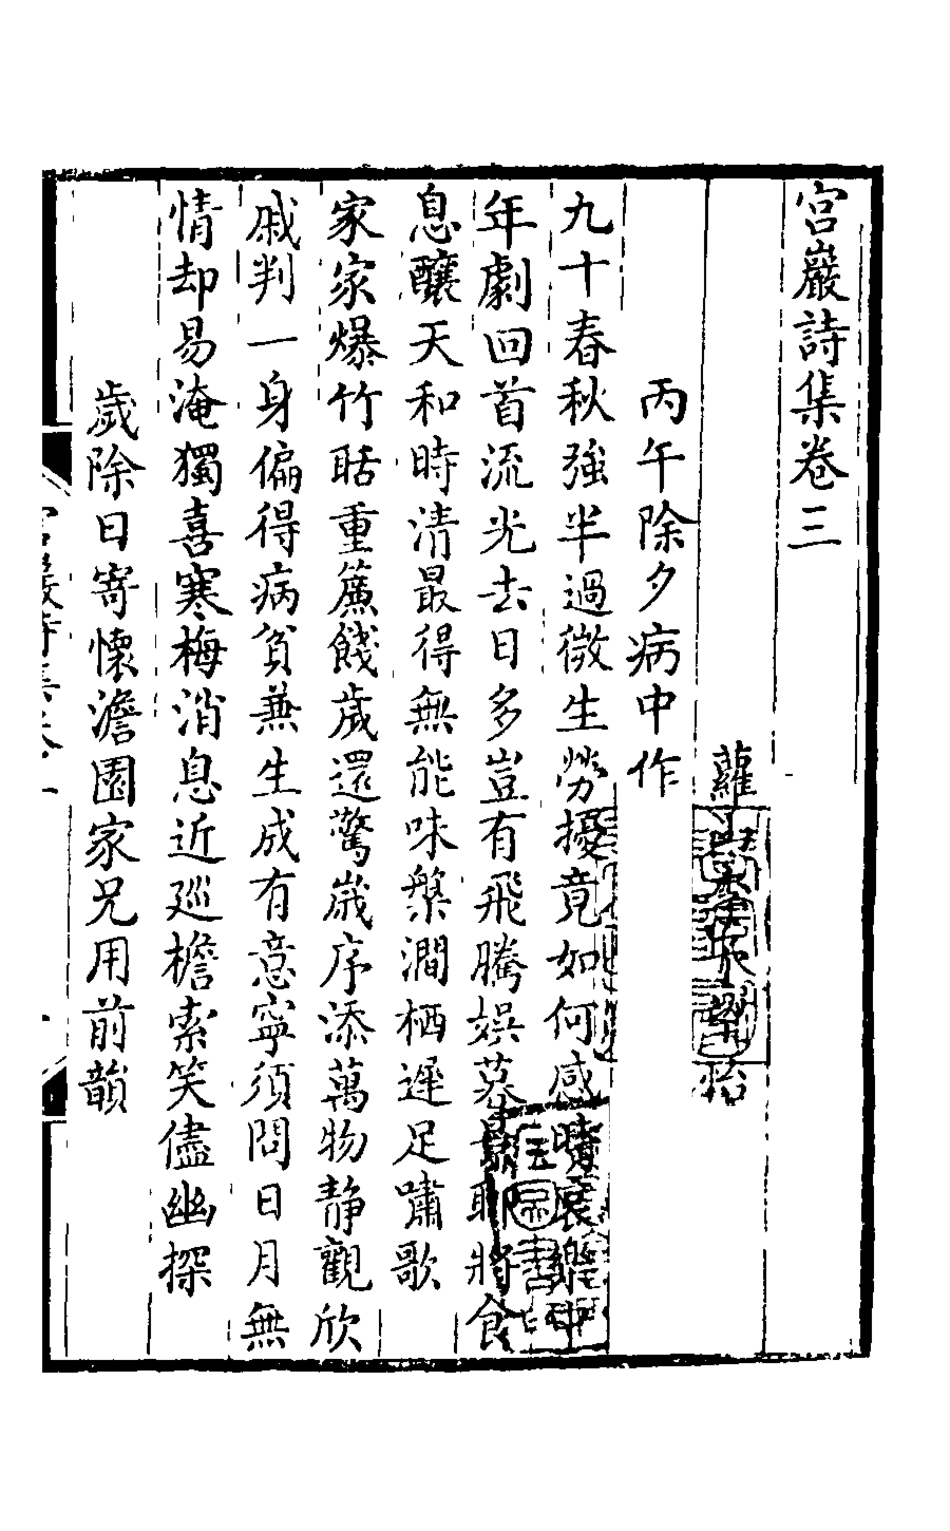 宮巖詩集卷三
蘿 怡
丙午除夕病中作
九十春秋強半過微生勞擾竟如何感時哀樂中
年劇回首流光去日多豈有飛騰娛暮景聊將食
息釀天和時清最得無能味槃澗栖遲足嘯歌
家家爆竹聒重簾餞歲還驚歲序添萬物静觀欣
戚判一身偏得病貧兼生成有意寧須問日月無
情却易淹獨喜寒梅消息近巡檐索笑儘幽探
歲除日寄懷澹園家兄用前韻